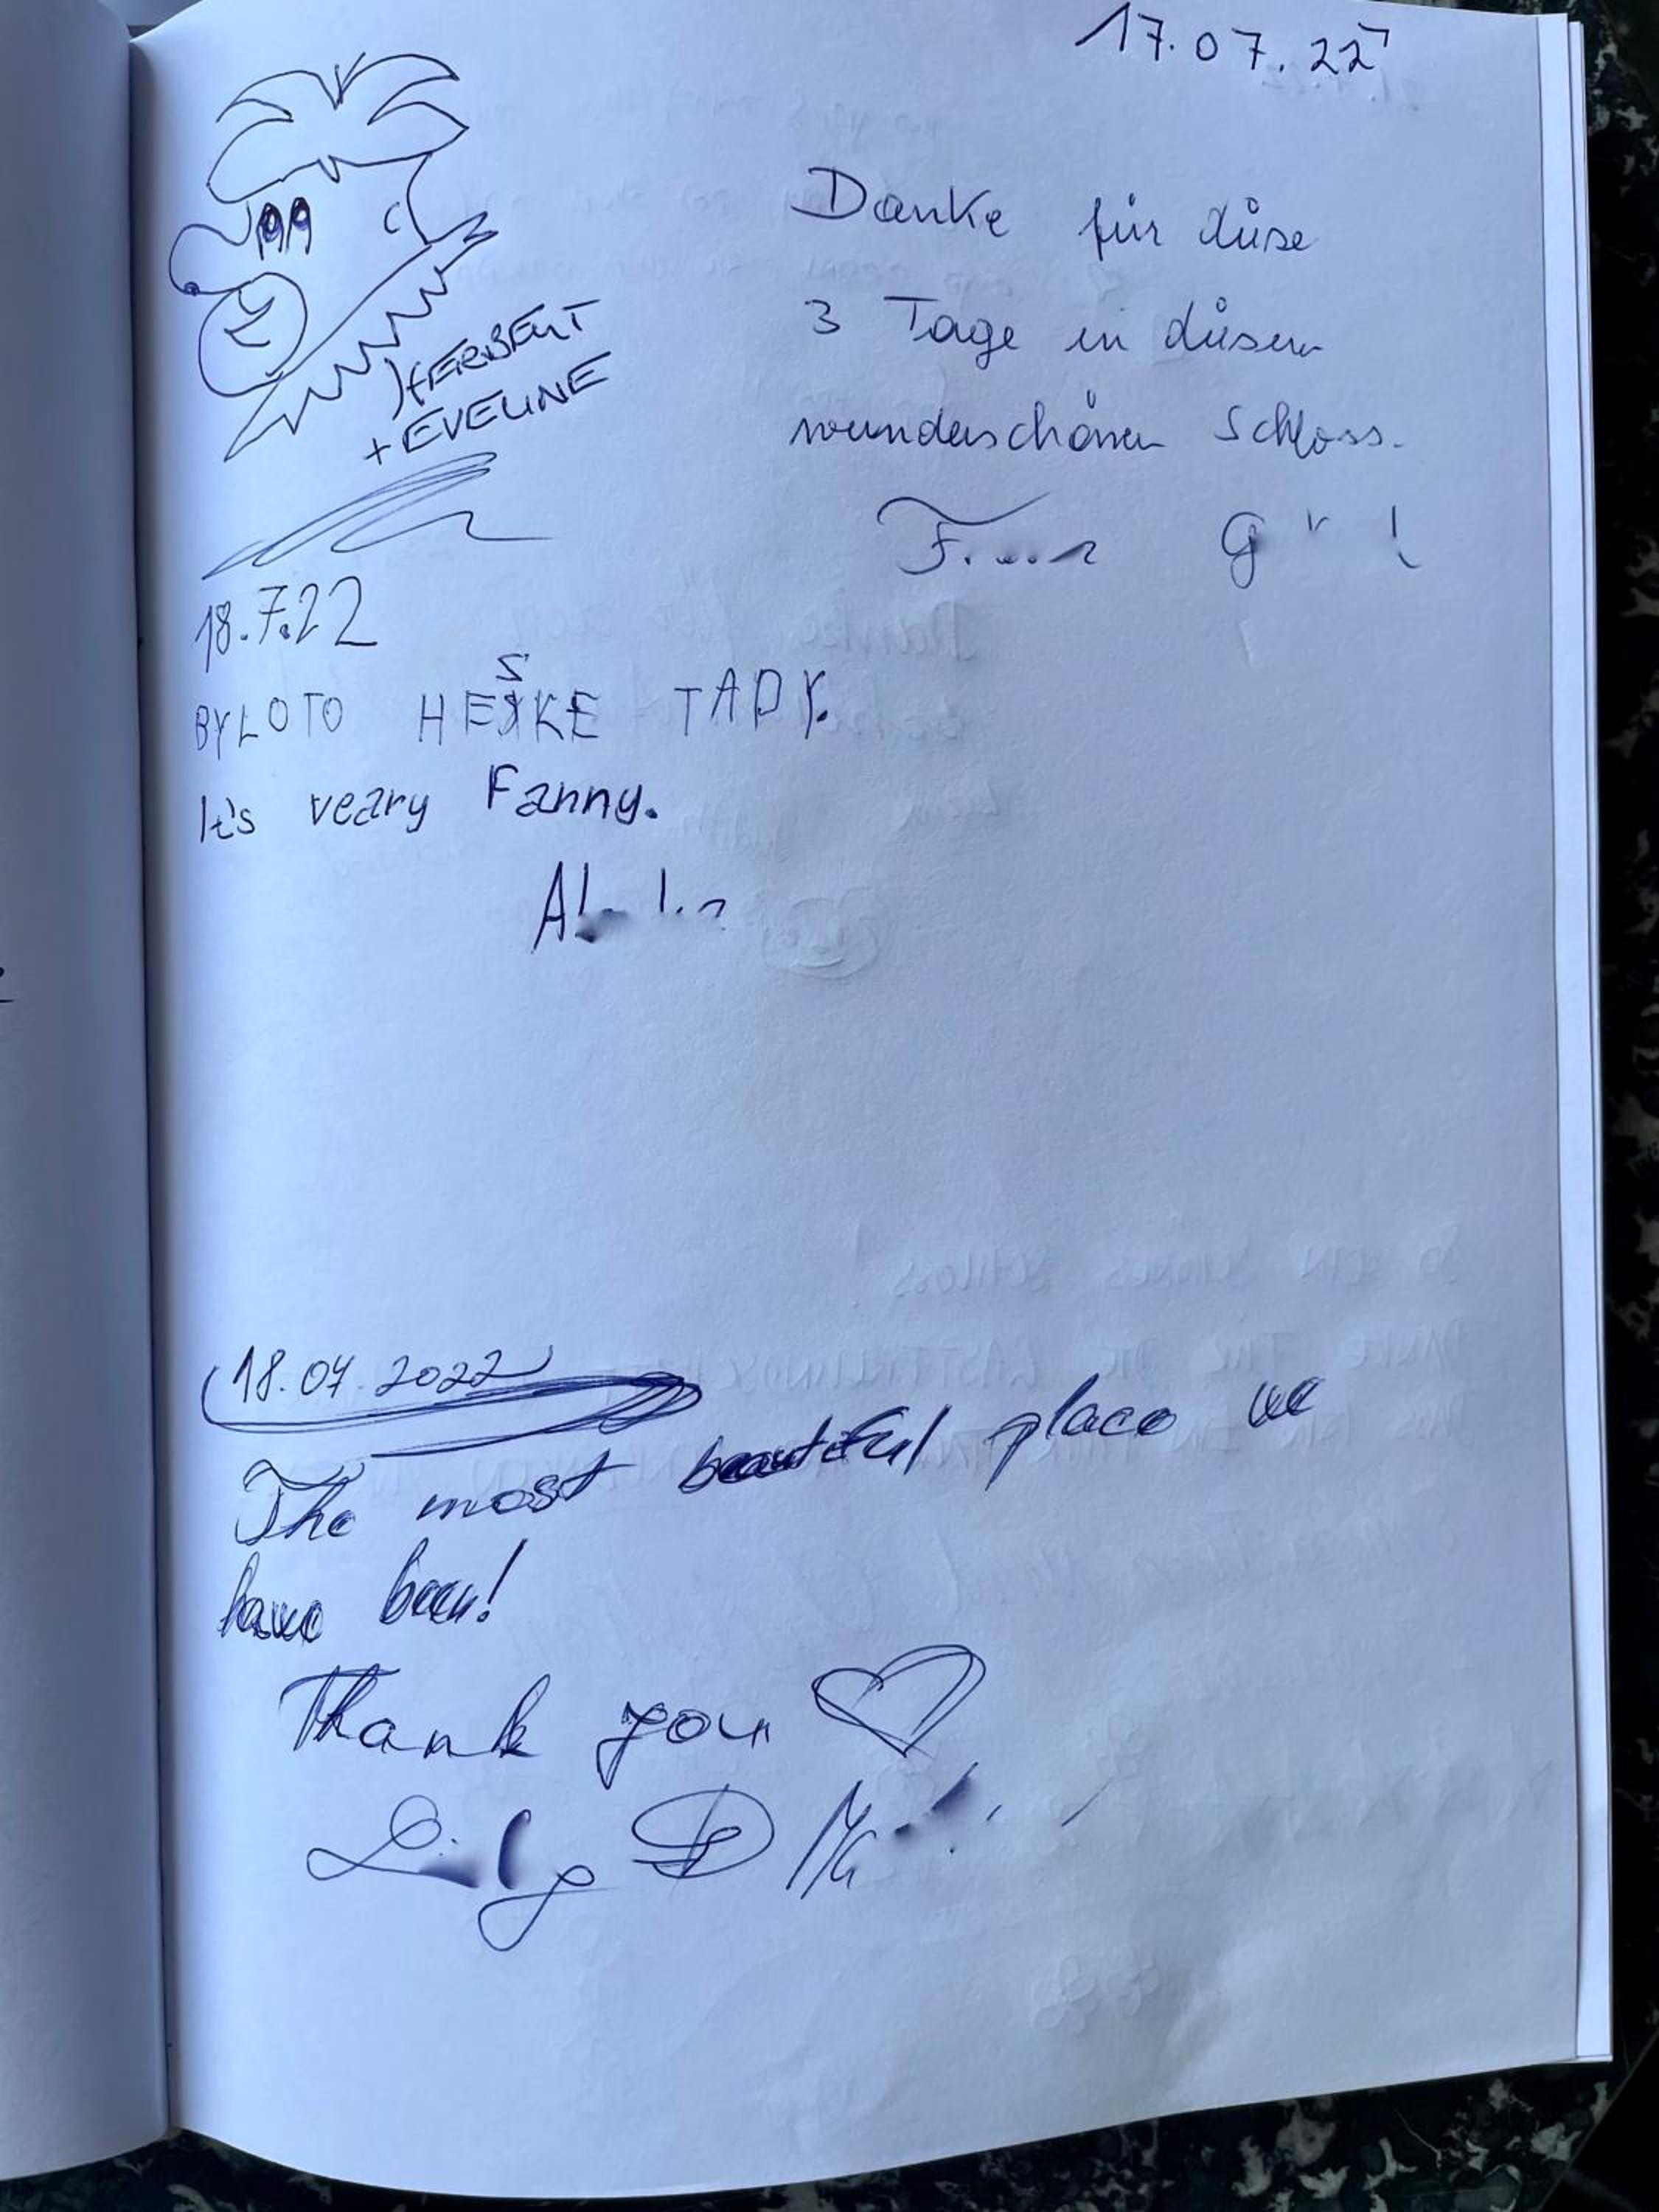 17.07.22
Danke für diese
3 Tage in diesem
wunderschönen Schloss.
HERBERT
+ EVELINE
18.7.22
BYLOTO HESKE TADY.
It's veary Fanny.
18.07.2022
The most beautiful place we
have been!
Thank you ♡